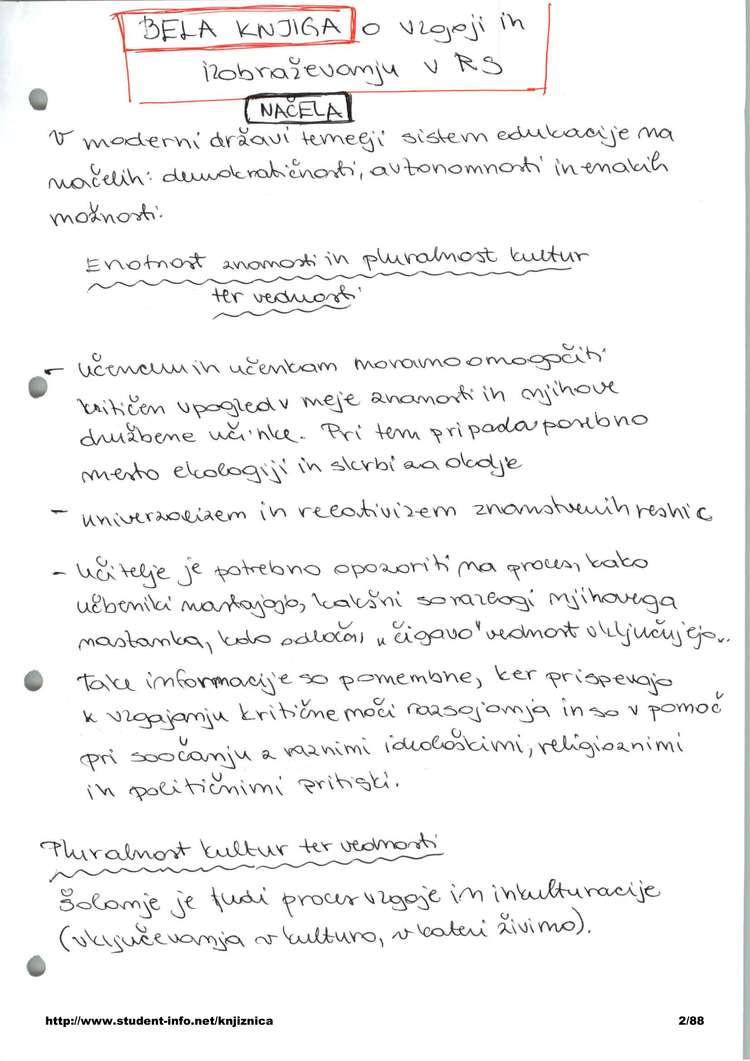 BELA KNJIGA o vzgoji in
izobraževanju v RS
NAČELA
V moderni državi temelji sistem edukacije na
načelih: demokratičnosti, avtonomnosti in enakih
možnosti.
Enotnost znanosti in pluralnost kultur
ter vednosti
- učencem in učenkam moramo omogočiti
kritičen vpogled v meje znanosti in njihove
družbene učinke. Pri tem pripada posebno
mesto ekologiji in skrbi za okolje
- univerzalizem in relativizem znanstvenih resnic
- Učitelje je potrebno opozoriti na proces, kako
učbeniki nastajajo, kakšni so razlogi njihovega
nastanka, kdo odloča, "čigavo" vednost vključujejo..
Take informacije so pomembne, ker prispevajo
k vzgajanju kritične moči razsojanja in so v pomoč
pri soočanju z raznimi ideološkimi, religioznimi
in političnimi pritiski.
Pluralnost kultur ter vednosti
Šolanje je tudi proces vzgoje in inkulturacije
(vključevanja v kulturo, v kateri živimo).
http://www.student-info.net/knjiznica
2/88